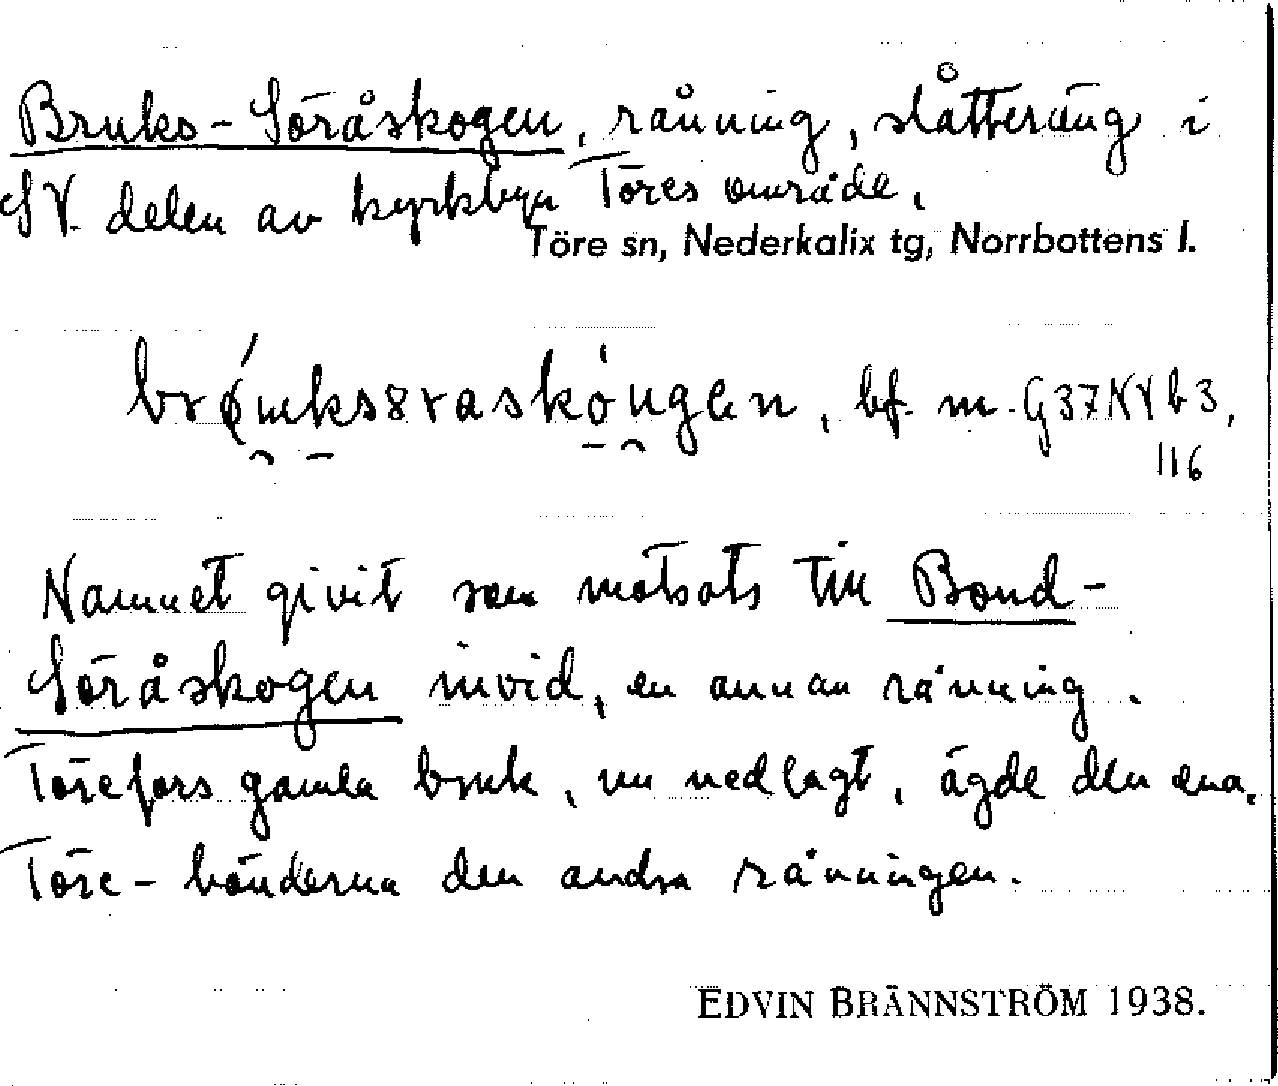 Bruks-Söråskogen, råning, slåtteräng i
SV. delen av kyrkbyn Töres område.
Töre sn, Nederkalix tg, Norrbottens l.
bf. m. G37NVb3,
116
Namnet givit som motsats till Bond-
Söråskogen invid, en annan råning.
Törefors gamla bruk, nu nedlagt, ägde den ena.
Töre-bönderna den andra råningen.
EDVIN BRÄNNSTRÖM 1938.